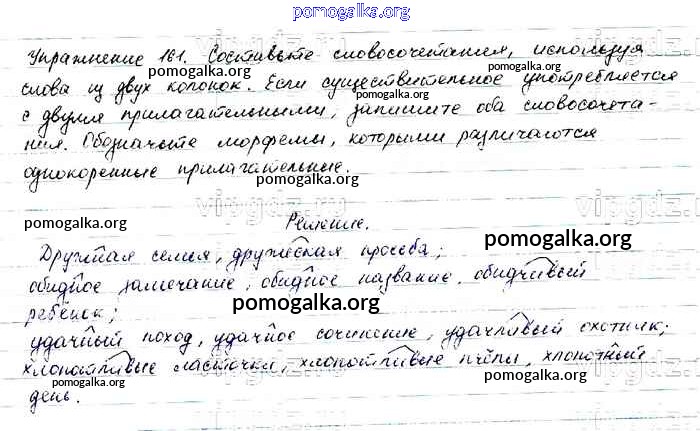 pomogalka.org
Упражнение 161. Составьте словосочетания, используя
слова из двух колонок. Если существительное употребляется
с двумя прилагательными, запишите оба словосочета-
ния. Обозначьте морфемы, которыми различаются
однокоренные прилагательные.
Решение.
Дружная семья, дружеская просьба;
обидное замечание, обидное название, обидчивый
ребёнок;
удачный поход, удачное сочинение, удачливый охотник;
хлопотливые ласточки, хлопотливые пчёлы, хлопотный
день.
pomogalka.org
pomogalka.org
pomogalka.org
pomogalka.org
pomogalka.org
pomogalka.org
pomogalka.org
pomogalka.org
pomogalka.org
vipgdz.ru
vipgdz.ru